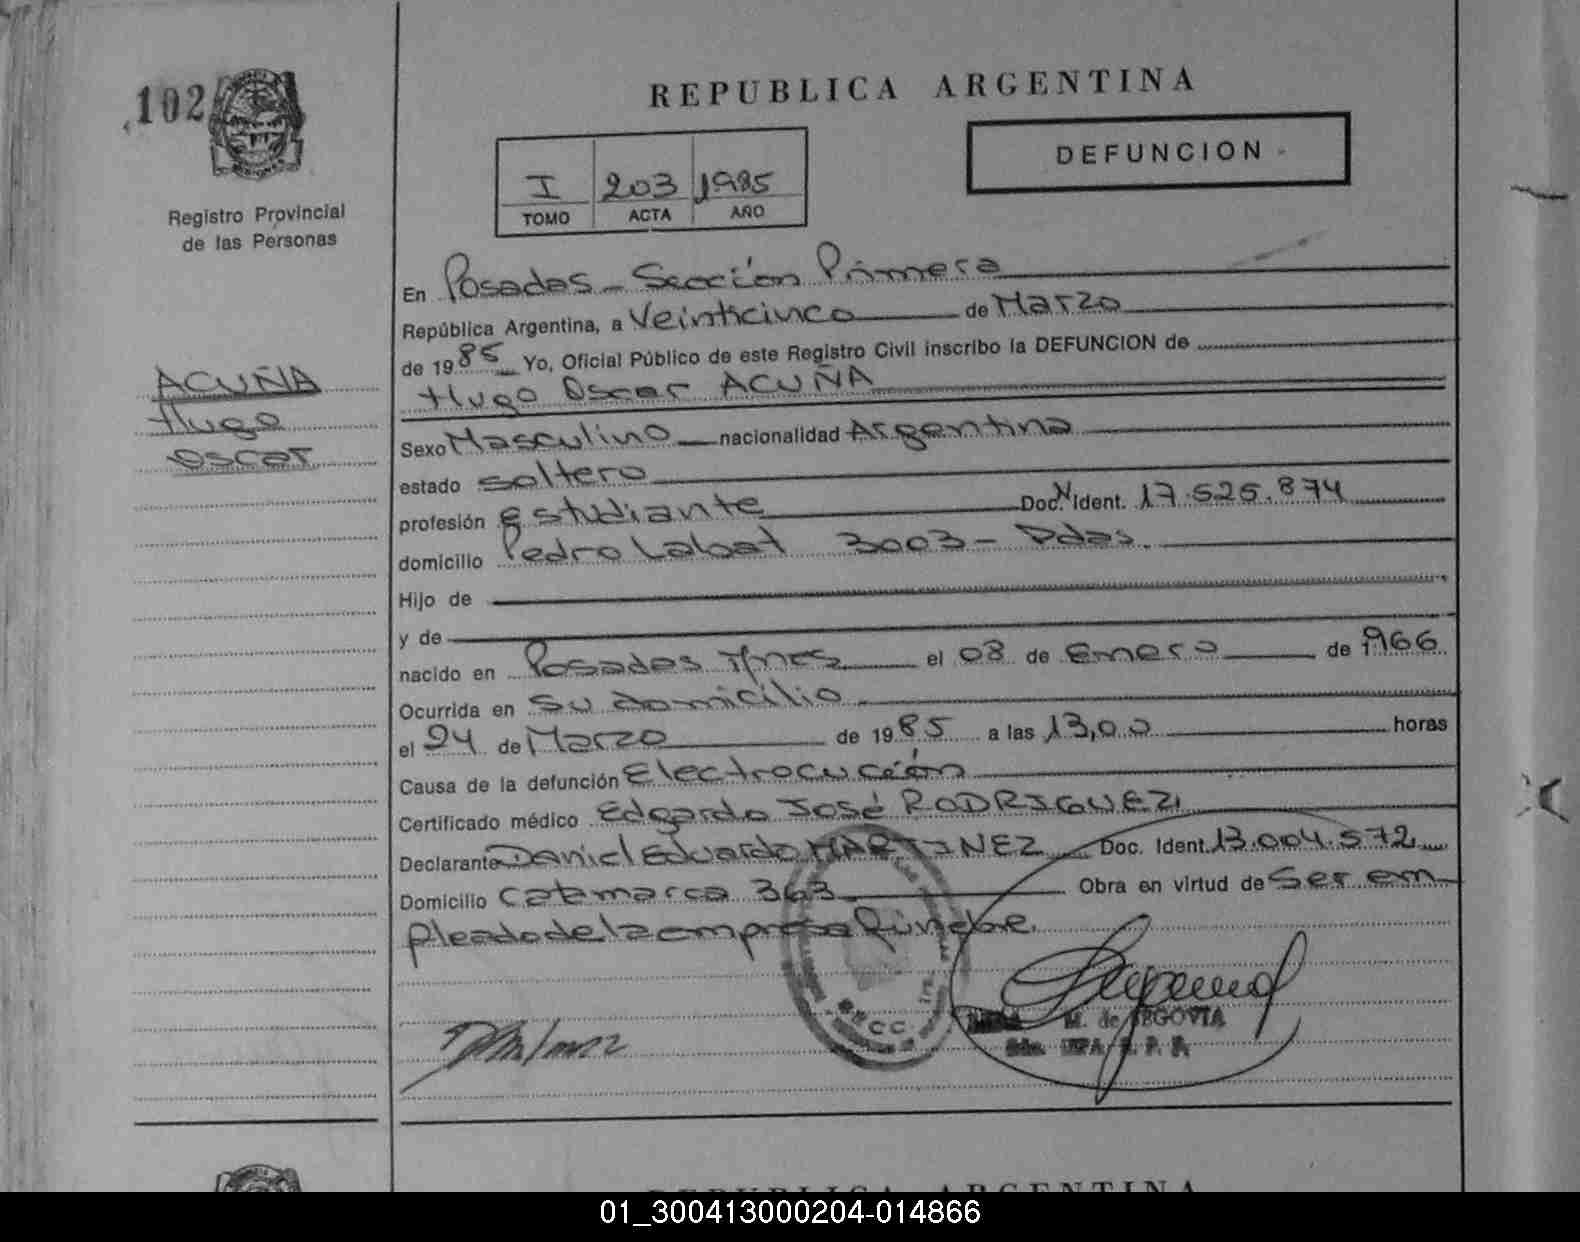 102
REPUBLICA ARGENTINA
DEFUNCION
I 203 1985
TOMO ACTA AÑO
Registro Provincial
de las Personas
ACUÑA
Hugo
Oscar
En Posadas - Sección Primera
República Argentina, a Veinticinco de Marzo
de 1985 Yo, Oficial Público de este Registro Civil inscribo la DEFUNCION de
Hugo Oscar ACUÑA
Sexo Masculino nacionalidad Argentina
estado soltero
profesión Estudiante Doc. N Ident. 17.525.874
domicilio Pedro Labat 3003 - Pdas.
Hijo de
y de
nacido en Posadas Mnes el 08 de Enero de 1966
Ocurrida en Su domicilio
el 24 de Marzo de 1985 a las 13,00 horas
Causa de la defunción Electrocución
Certificado médico Edgardo José RODRIGUEZ
Declarante Daniel Eduardo MARTINEZ Doc. Ident. 13.004.572
Domicilio Catamarca 363 Obra en virtud de Ser em
pleado de la empresa fúnebre.
M. de SEGOVIA
REPUBLICA ARGENTINA
01_300413000204-014866